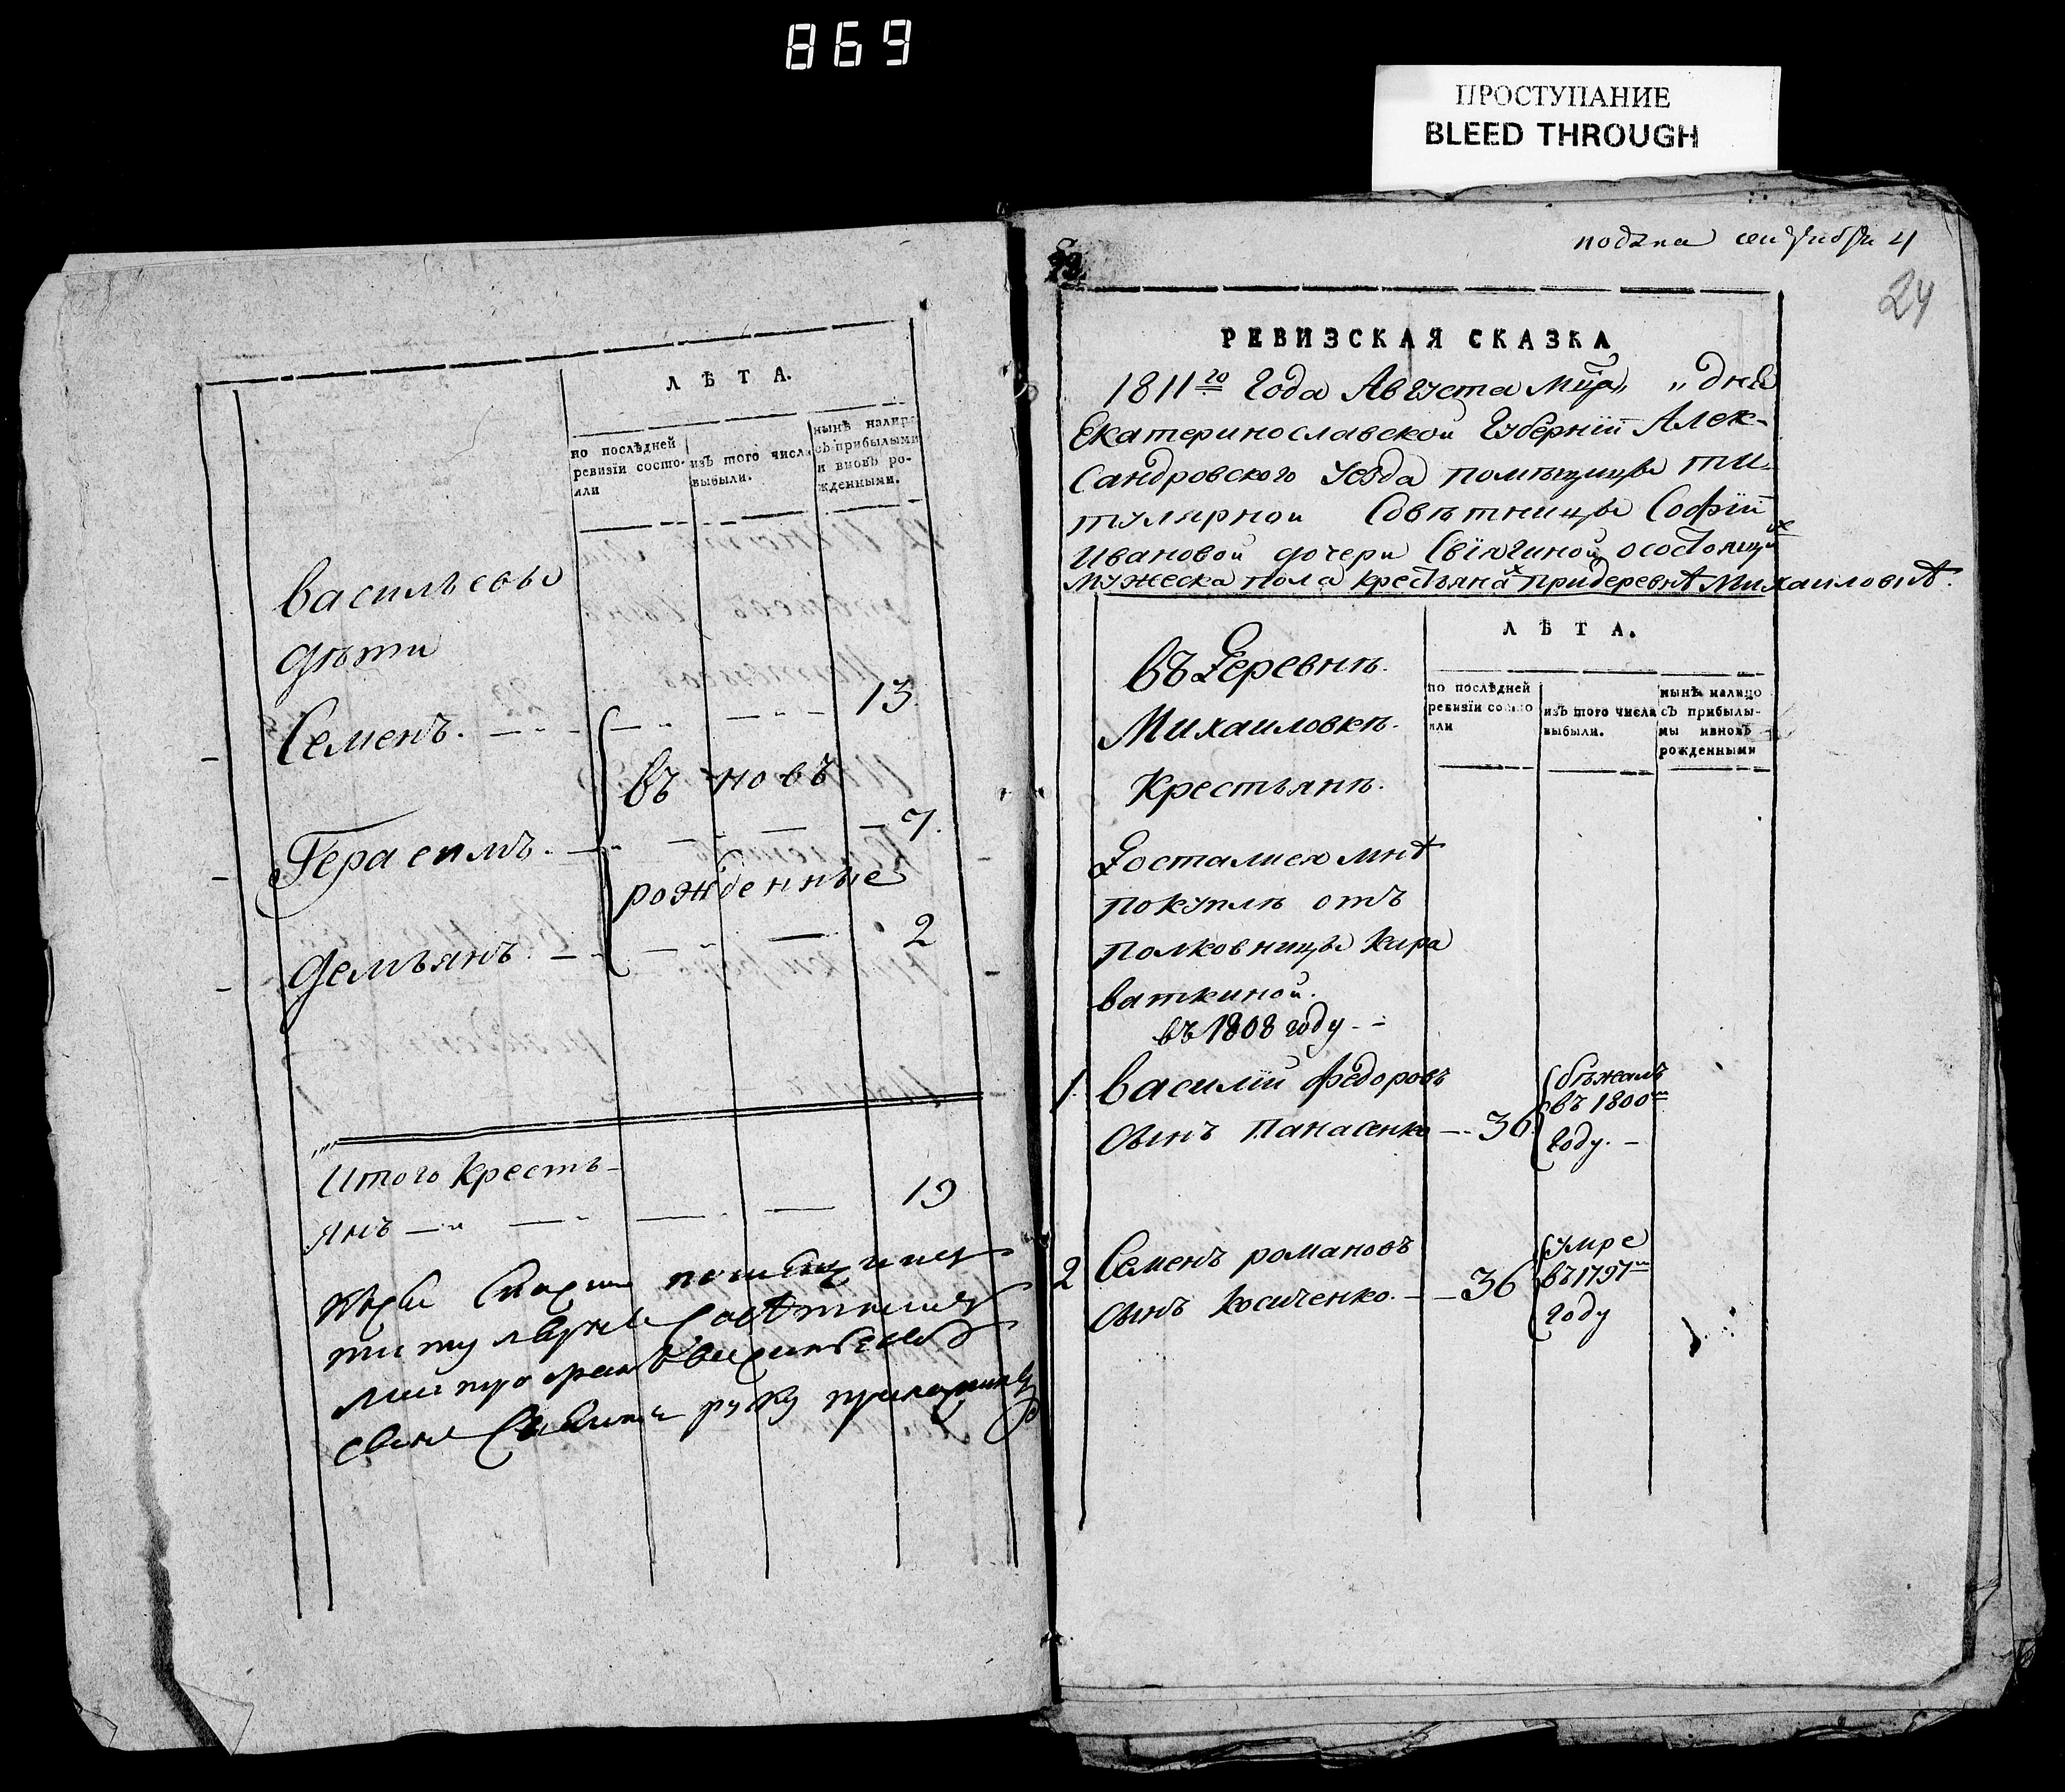 869
ПРОСТУПАНИЕ
BLEED THROUGH
ЛѢТА.
по послѣдней ревизіи состояли
изъ того числа выбыли.
нынѣ налицо съ прибылыми и вновь рожденными.
Васильевы
дѣти
Семенъ. 13.
въ новь
Герасимъ. 7.
рожденные
Демьянъ 2
Итого Кресть-
янъ 19
руку
подана сентября 4
24
РЕВИЗСКАЯ СКАЗКА
1811го Года Августа Мца „ „ дня
Екатеринославской Губерніи Алек-
Сандровского уезда помѣщицы ти-
тулярной Совѣтницы Софіи
Ивановой дочери Свіягиной о состоящихъ
мужеска пола крестьянахъ при деревнѣ Михаиловкѣ.
ЛѢТА.
по послѣдней ревизіи состояли
изъ того числа выбыли.
нынѣ налицо съ прибылы-мы ивновь рожденными
Въ Деревнѣ.
Михаиловкѣ.
Крестьянѣ.
Досталися мнѣ
покуплѣ отъ
полковницы Кара
ваткиной.
въ 1808 году
1. Василій Федоровъ
сынъ Панасенко 36. бѣжалъ въ 1800м Году.
2 Семенъ романовъ
сынъ Косиченко. 36 умре въ 1797м году